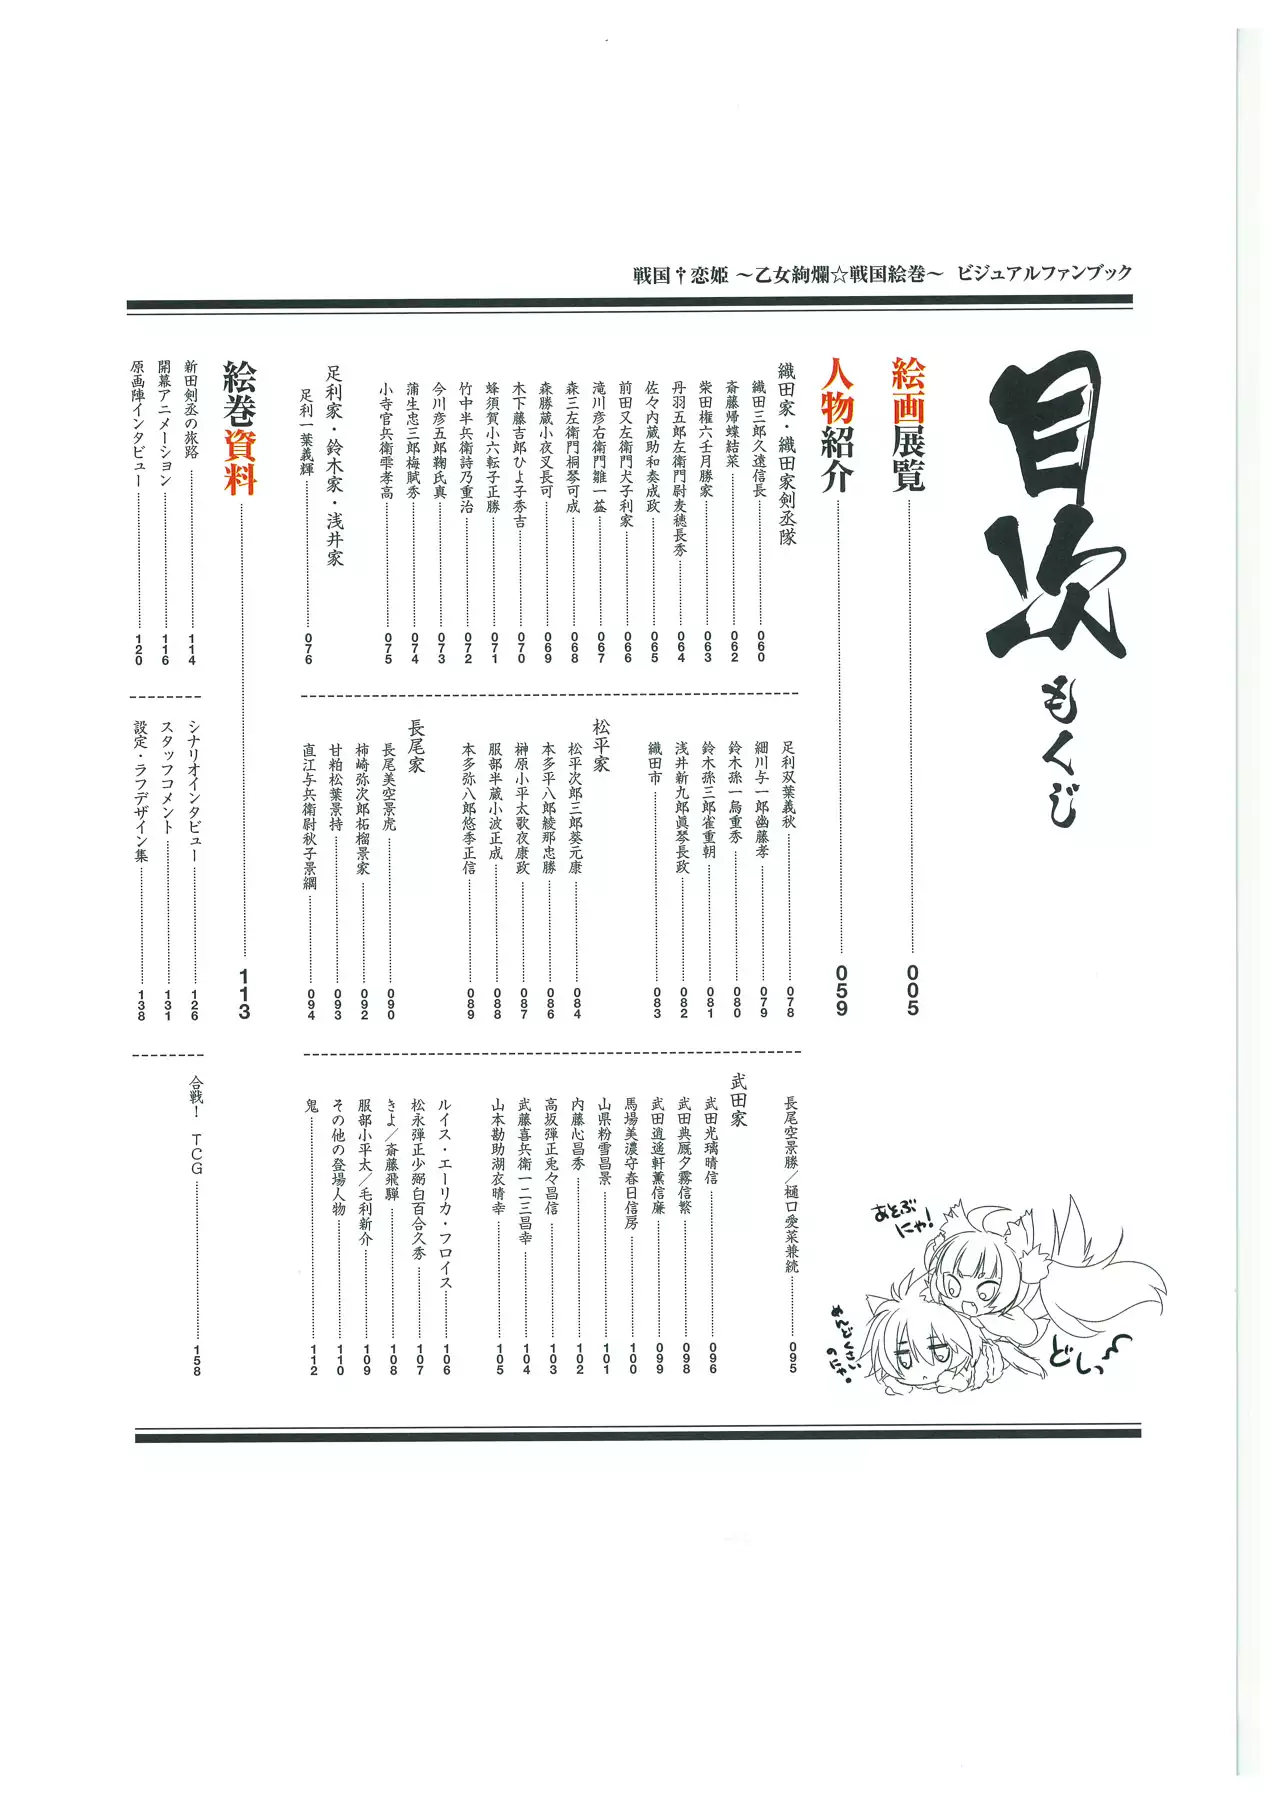 戦国†恋姫 ～乙女絢爛☆戦国絵巻～ ビジュアルファンブック
目次
もくじ
絵画展覧 005
人物紹介 059
織田家・織田家剣丞隊
織田三郎久遠信長 060
斎藤帰蝶結菜 062
柴田権六壬月勝家 063
丹羽五郎左衛門尉麦穂長秀 064
佐々内蔵助和奏成政 065
前田又左衛門犬子利家 066
滝川彦右衛門雛一益 067
森三左衛門桐琴可成 068
森勝蔵小夜叉長可 069
木下藤吉郎ひよ子秀吉 070
蜂須賀小六転子正勝 071
竹中半兵衛詩乃重治 072
今川彦五郎鞠氏真 073
蒲生忠三郎梅賦秀 074
小寺官兵衛雫孝高 075
足利家・鈴木家・浅井家
足利一葉義輝 076
足利双葉義秋 078
細川与一郎幽藤孝 079
鈴木孫一烏重秀 080
鈴木孫三郎雀重朝 081
浅井新九郎眞琴長政 082
織田市 083
松平家
松平次郎三郎葵元康 084
本多平八郎綾那忠勝 086
榊原小平太歌夜康政 087
服部半蔵小波正成 088
本多弥八郎悠季正信 089
長尾家
長尾美空景虎 090
柿崎弥次郎柘榴景家 092
甘粕松葉景持 093
直江与兵衛尉秋子景綱 094
長尾空景勝／樋口愛菜兼続 095
武田家
武田光璃晴信 096
武田典厩夕霧信繁 098
武田逍遥軒薫信廉 099
馬場美濃守春日信房 100
山県粉雪昌景 101
内藤心昌秀 102
高坂弾正兎々昌信 103
武藤喜兵衛一二三昌幸 104
山本勘助湖衣晴幸 105
ルイス・エーリカ・フロイス 106
松永弾正少弼白百合久秀 107
きよ／斎藤飛騨 108
服部小平太／毛利新介 109
その他の登場人物 110
鬼 112
絵巻資料 113
新田剣丞の旅路 114
開幕アニメーション 116
原画陣インタビュー 120
シナリオインタビュー 126
スタッフコメント 131
設定・ラフデザイン集 138
合戦！ TCG 158
あそぶ
にゃ！
めんどくさい
のにゃ。
どしっ〜